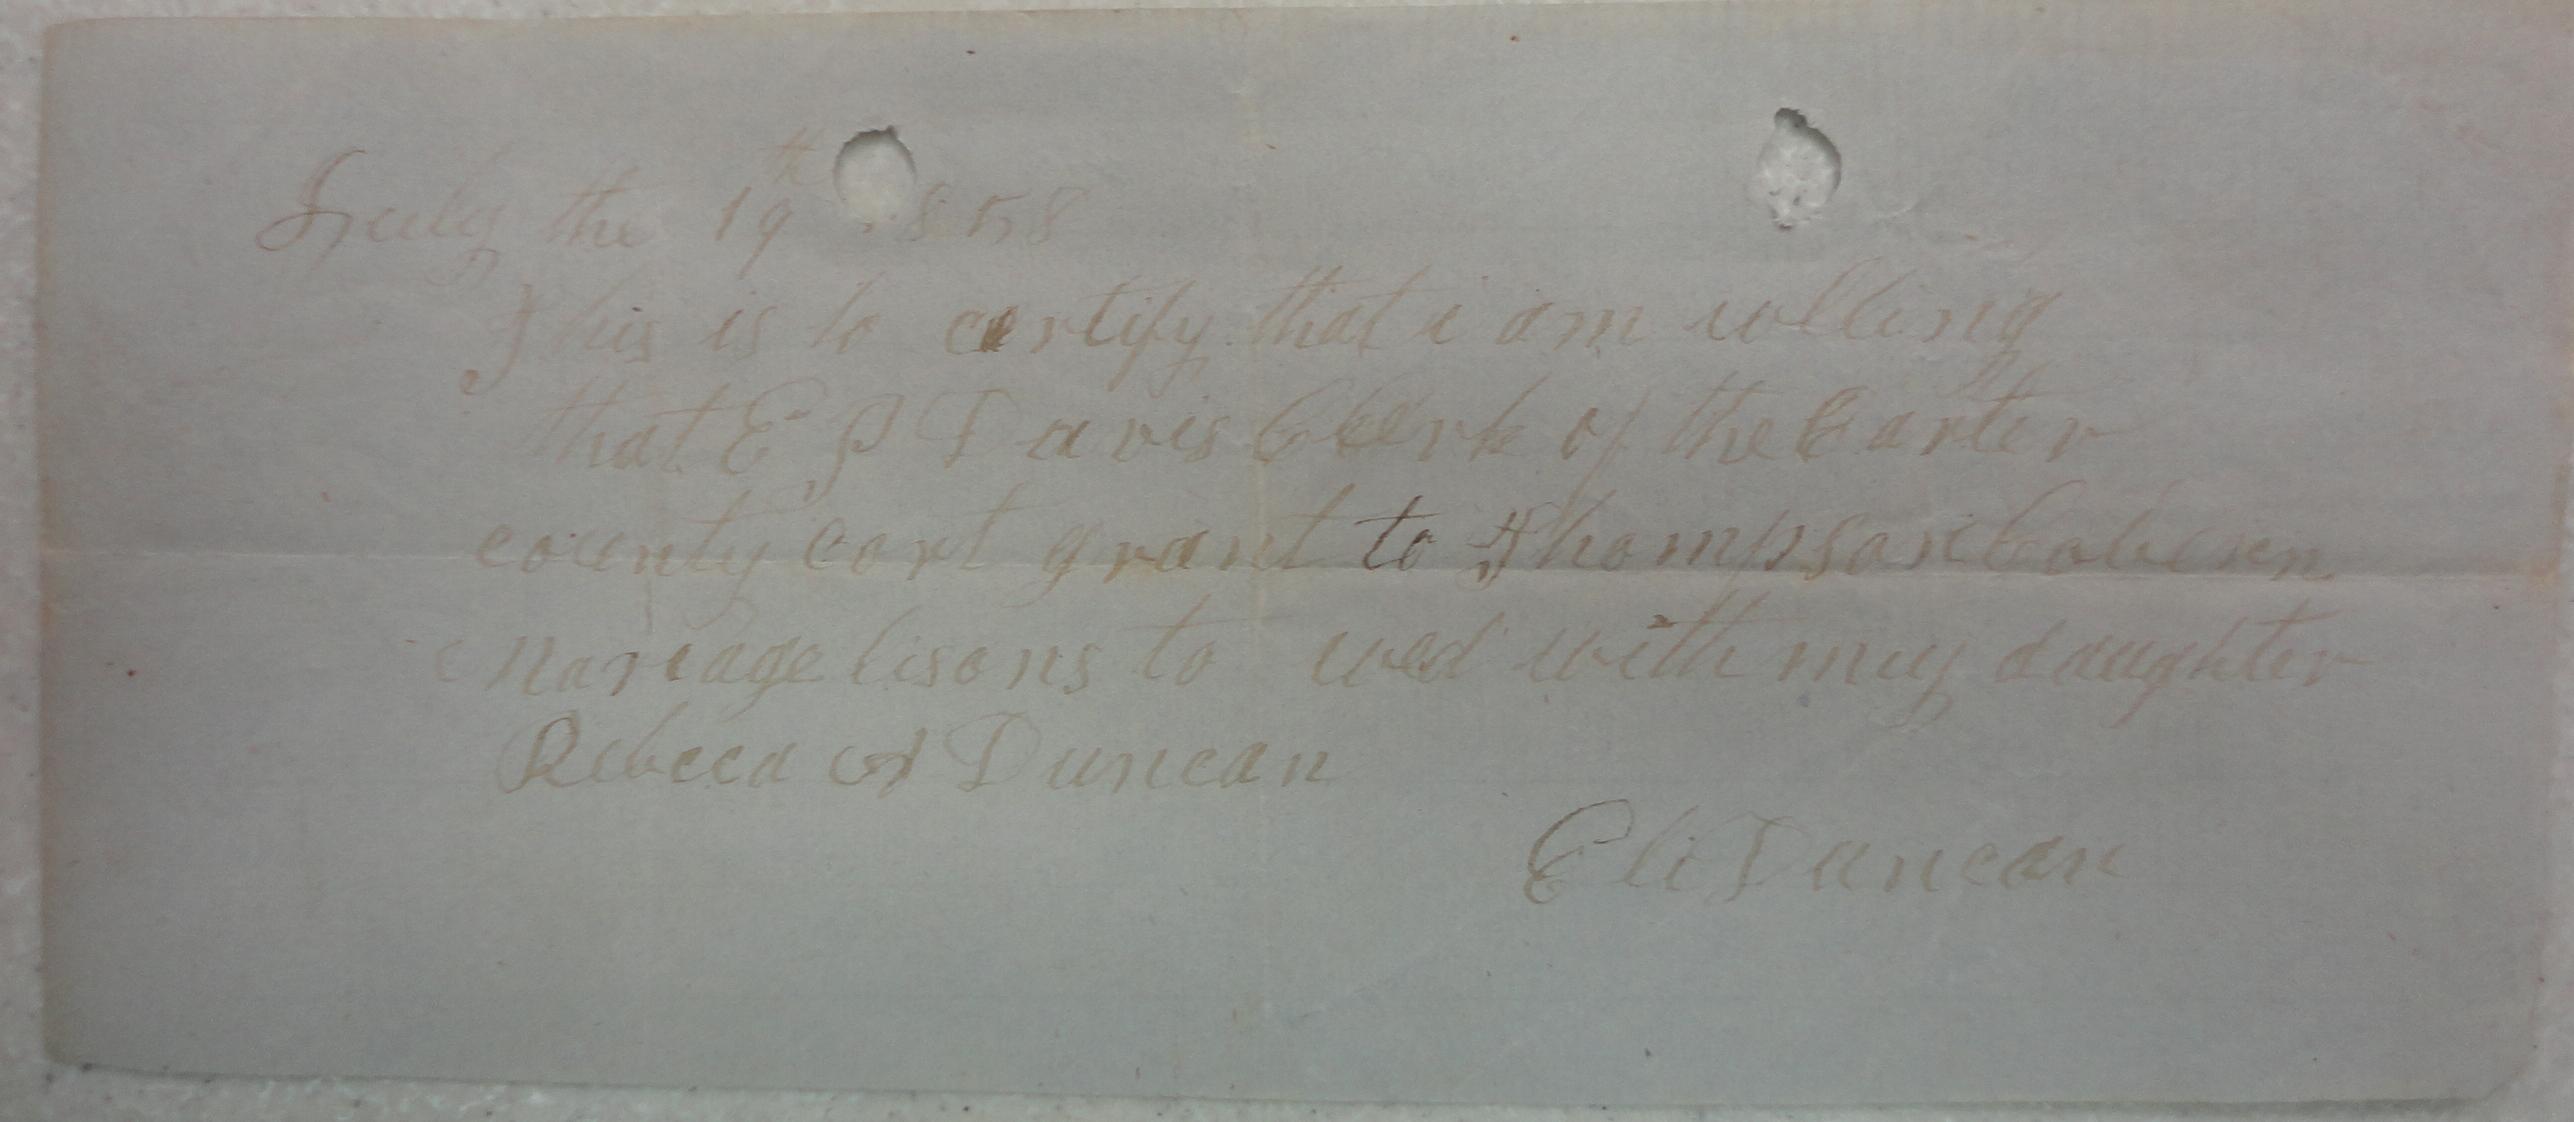 July the 19th 1858
This is to certify that i am willing
that E P Davis Clerk of the Carter
county cort grant to Thompson Coburn
mariage lisons to wed with my daughter
Rebeca A Duncan
Eli Duncan